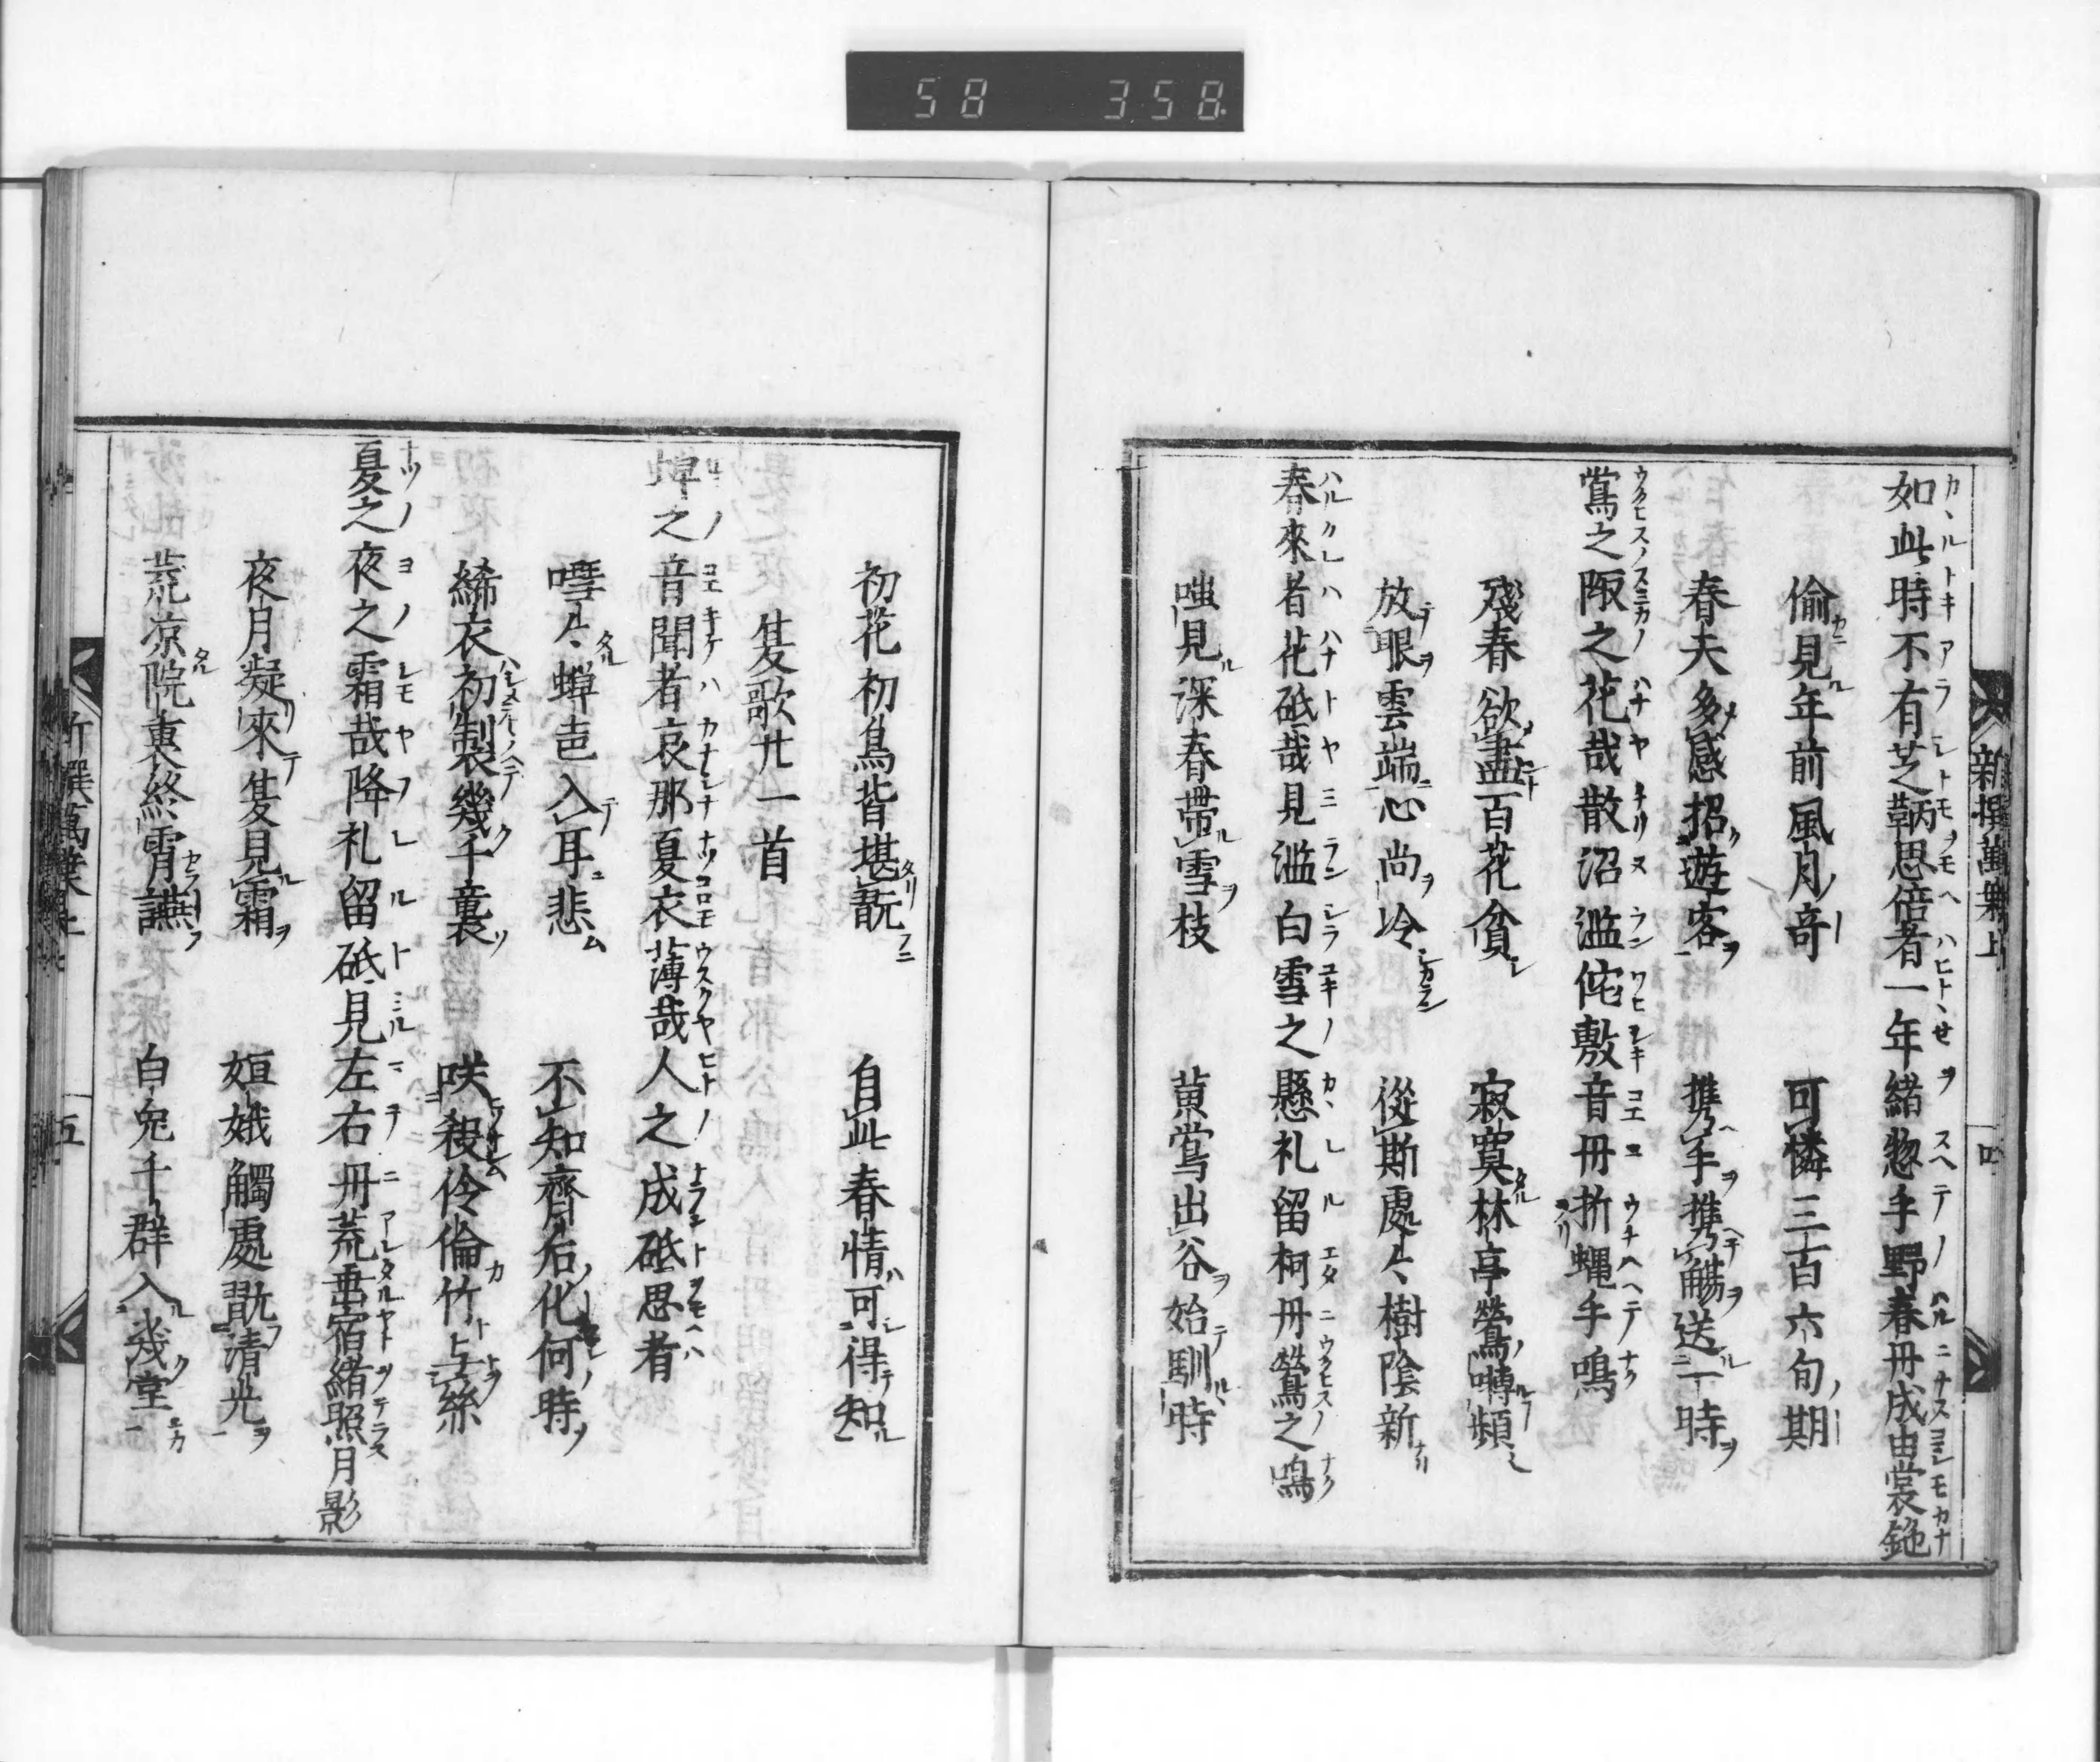 58 358
新撰萬葉上
四
如此時不有芝鞆思倍者一年緒惣手野春丹成由裳鉇
偷見年前風月奇 可憐三百六旬期
春夫多感招遊客 携手携觴送一時
鶯之陬之花哉散沼濫侘敷音丹折蠅手鳴
殘春欲盡百花貧 寂寞林亭鶯囀頻
放眼雲端心尚冷 從斯處々樹陰新
春來者花砥哉見濫白雪之懸礼留柯丹鶯之鳴
嗤見深春帶雪枝 黄鶯出谷始馴時
初花初鳥皆堪翫 自此春情可得知
夏歌廿一首
蝉之音聞者哀那夏衣薄哉人之成砥思者
嘒々蝉声入耳悲 不知齊后化何時
絺衣初製幾千襲 咲殺伶倫竹与絲
夏之夜之霜哉降礼留砥見左右丹荒垂宿緒照月影
夜月凝來夏見霜 姮娥觸處翫清光
荒涼院裏終霄讌 白兎千群入幾堂
新撰萬葉上
五